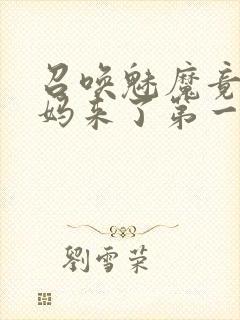 召唤魅魔竟
妈来了第一
劉雪荣